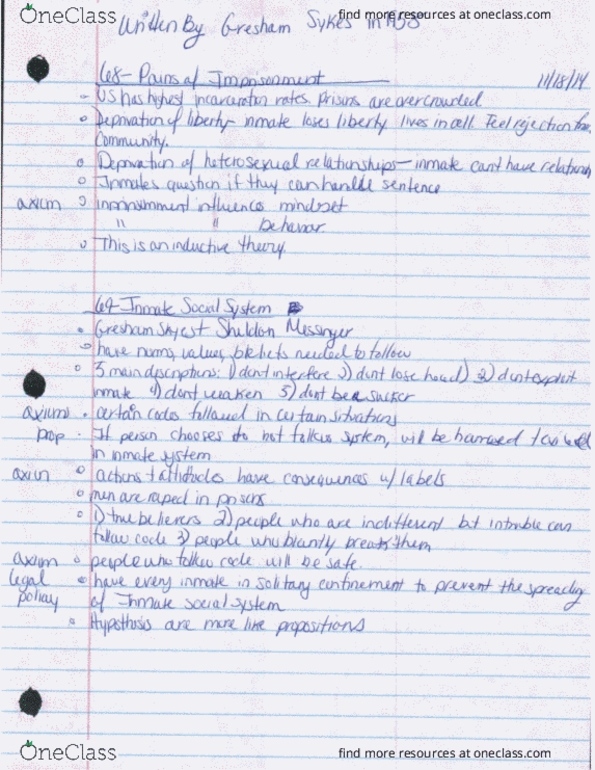 OneClass
find more resources at oneclass.com
Written By Gresham Sykes in
68- Pains of Imprisonment
11/18/14
- US has highest incarceration rates. Prisons are overcrowded
Deprivation of liberty- inmate loses liberty lives in cell. Feel rejection
Community.
Deprivation of heterosexual relationships- inmate cant have relations
Inmates question if they can handle sentence
axiom imprisonment influences mindset
" " behavior
This is an inductive theory
69- Inmate Social System
Gresham Sheldon Messinger
have norms, values, beliefs needed to follow
5 main descriptions: 1) dont interfere 2) dont lose head 3) dont exploit
inmate 4) dont weaken 5) dont be a sucker
axioms certain codes followed in certain situations
prop If person chooses to not follow system, will be
in inmate system
axiom actions + attitudes have consequences w/ labels
men are raped in prisons
1) true believers 2) people who are indifferent but in trouble can
follow code 3) people who break them
axiom people who follow code will be safe.
legal have every inmate in solitary confinement to prevent the spreading
policy of Inmate Social System
Hypothesis are more like propositions
OneClass
find more resources at oneclass.com